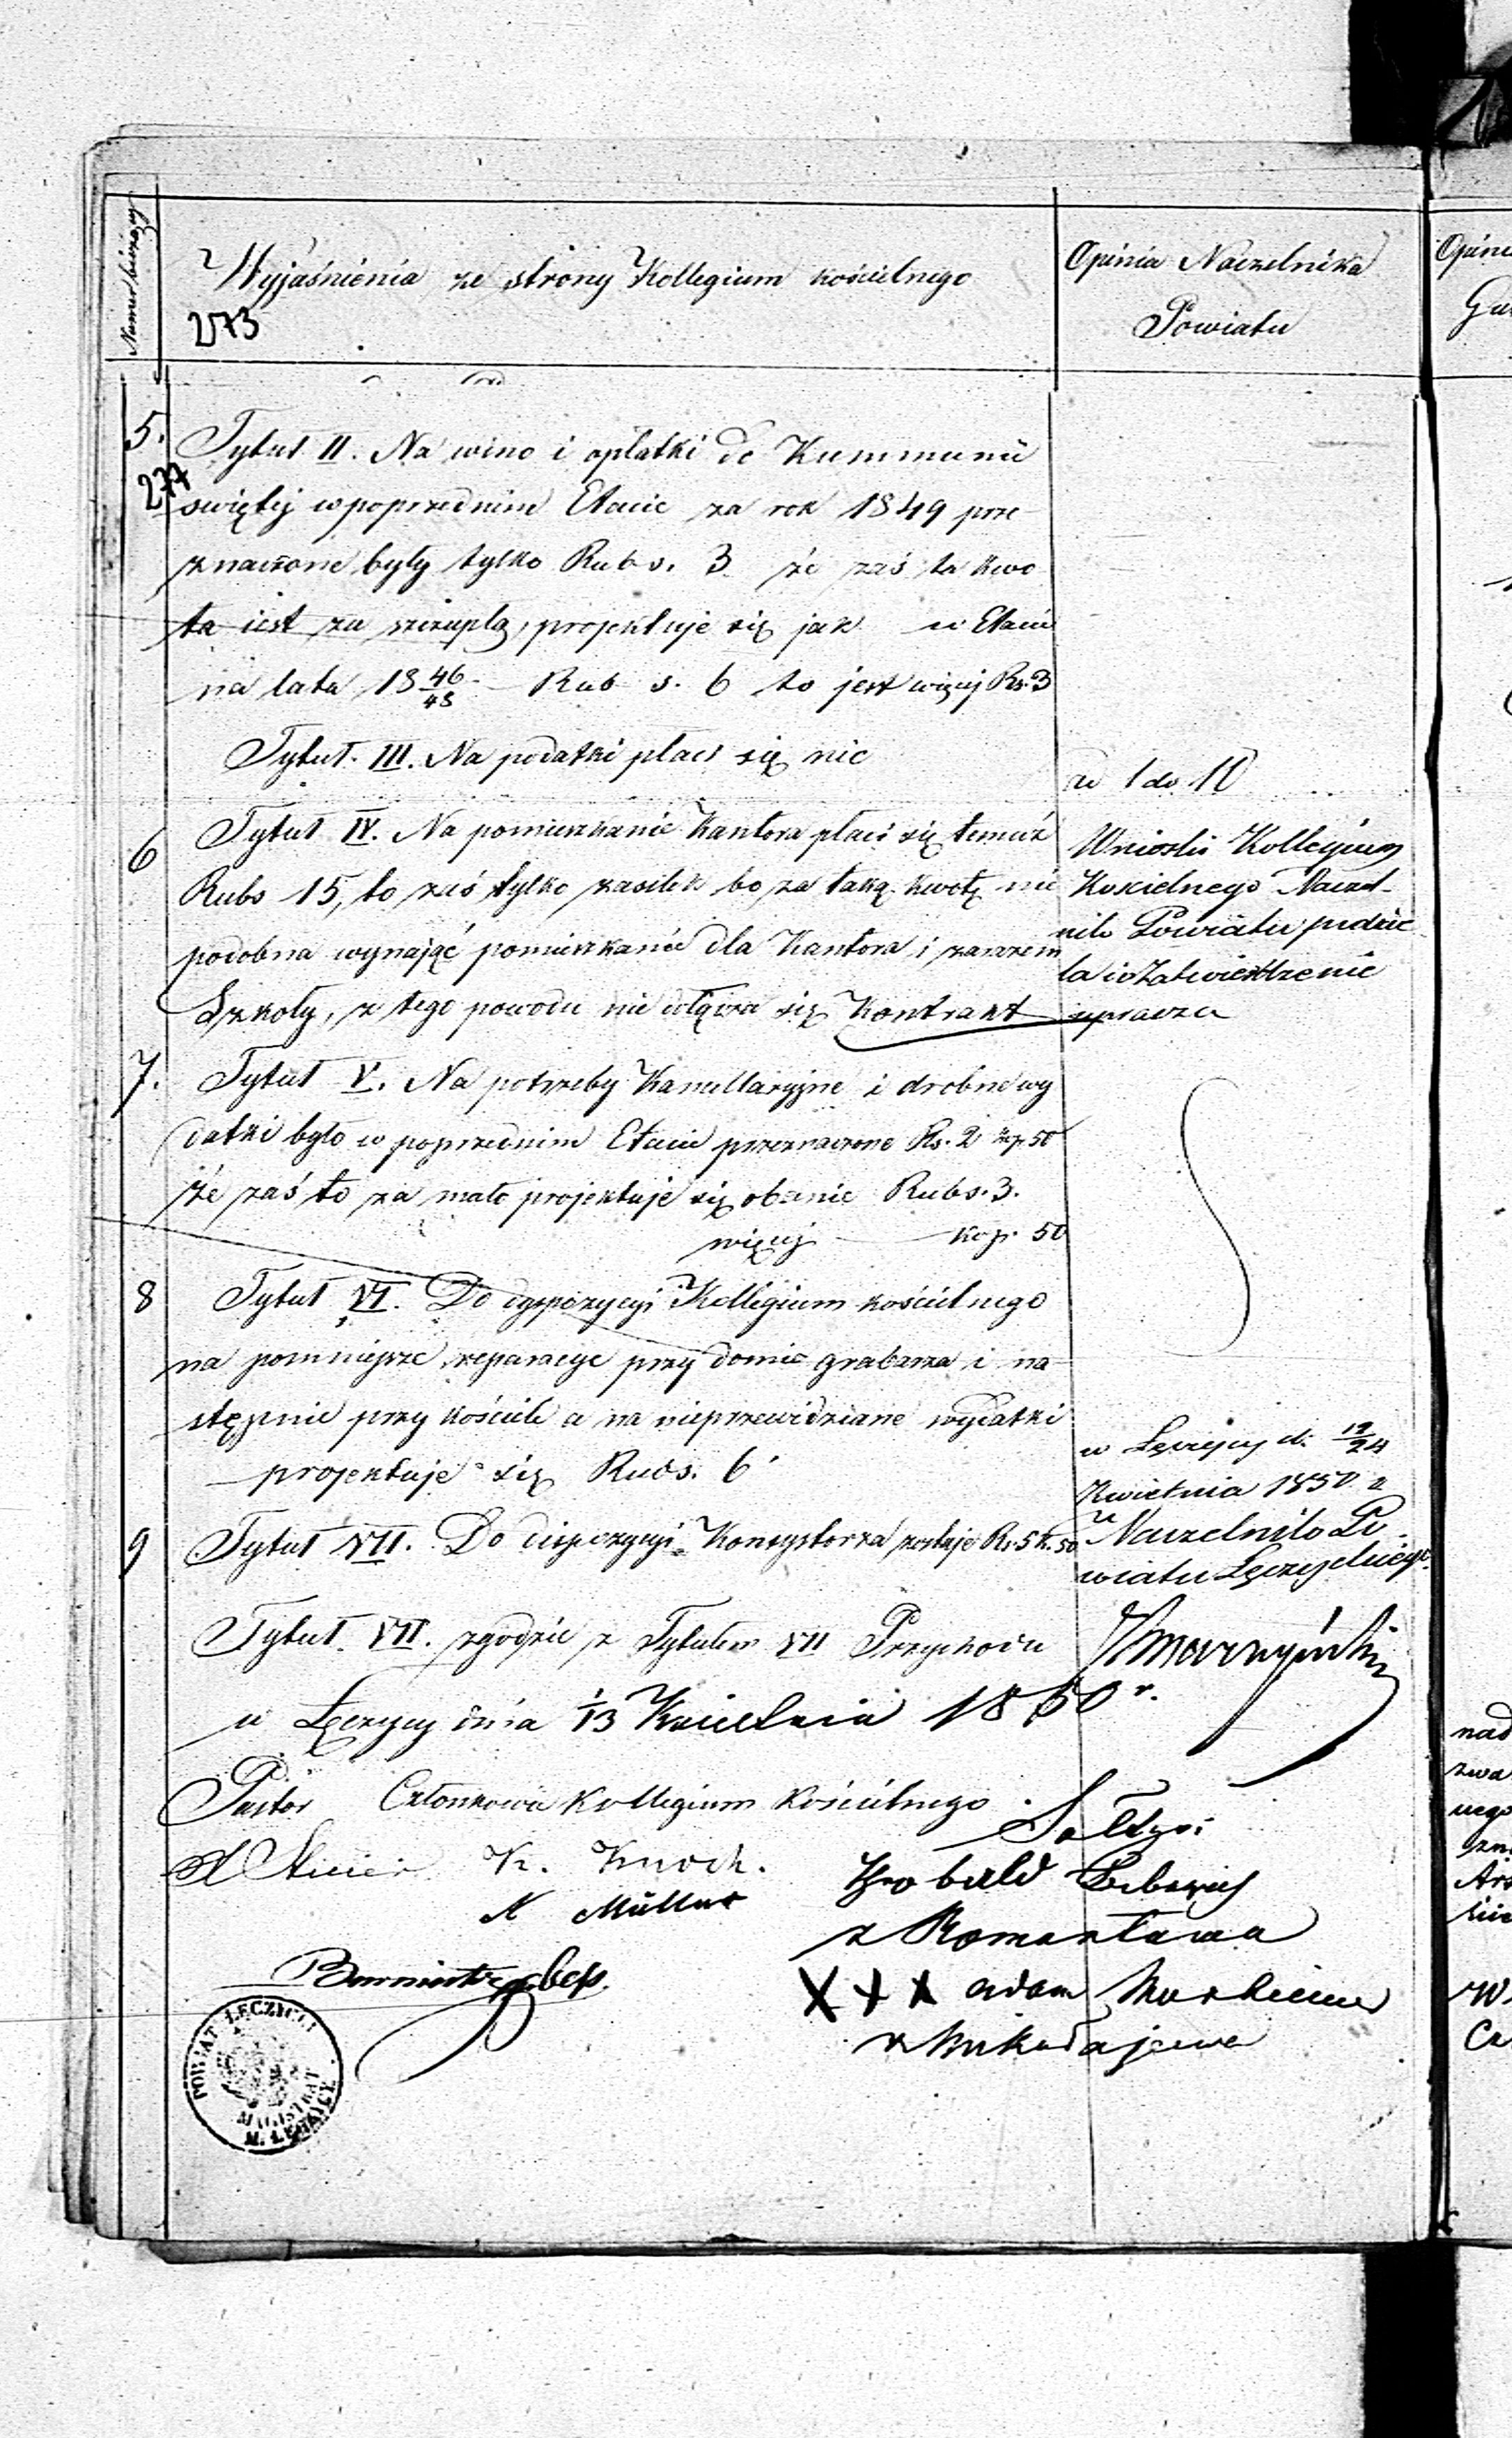 Numer bieżący
Wyjaśnienia ze strony Kollegium kościelnego
273
Opinia Naczelnika
Powiatu
5.
277
Tytuł II. Na wino i opłatki do Kummunii
swiętej w poprzednim Etacie za rok 1849 prze-
znaczone były tylko Rubs. 3 że zaś ta kwo
ta iest za szczupłą, projektuje się jak w Etacie
na lata 18 46/48 – Rub s. 6 to jest więcej Rs. 3
Tytuł. III. Na podatki płaci się nic
6
Tytuł IV. Na pomieszkanie Kantora płaci się temuż
Rubs 15, to zaś tylko zasiłek bo za taką kwotę nie
podobna wynająć pomieszkanie dla Kantora i zarazem
Szkoły, z tego powodu nie dołącza się Kontrakt
7.
Tytuł V. Na potrzeby Kancellaryjne i drobne wy
datki było w poprzednim Etacie przeznaczone Rs. 2 kop 50
że zaś to za mało projektuje się obecnie Rubs. 3.
więcej — kop. 50
8
Tytuł VI. Do dyspozycyi Kollegium kościelnego
na pomniejsze reparacye przy domie grabarza i na-
stępnie przy kościele a na nieprzewidziane wydatki
projektuje się Rubs. 6
9
Tytuł VII. Do dispozycyi Konsystorza zostaje Rs. 5 k. 50
Tytuł VII. zgodzie z Tytułem VII Przychodu
w Łęczycy dnia 1/13 Kwietnia 1850 r.
Pastor Członkowie Kollegium Kościelnego.
K. Knoch.
Müller
Sołtysi
z Romartowa
XXX Adam
z Mikołajewa
Burmistrz
POWIAT ŁĘCZYCKI
MAGISTRAT
M. ŁĘCZYCY
od 1 do 10
Wnioski Kollegium
Koscielnego Naczel-
nik Powiatu podzie
la i o Zatwierdzenie
uprasza
w Łęczycy d. 12/24
Kwietnia 1850 r
Naczelnik Po
wiatu Łęczyckiego
Opini
Gu
nad
zwa
nego